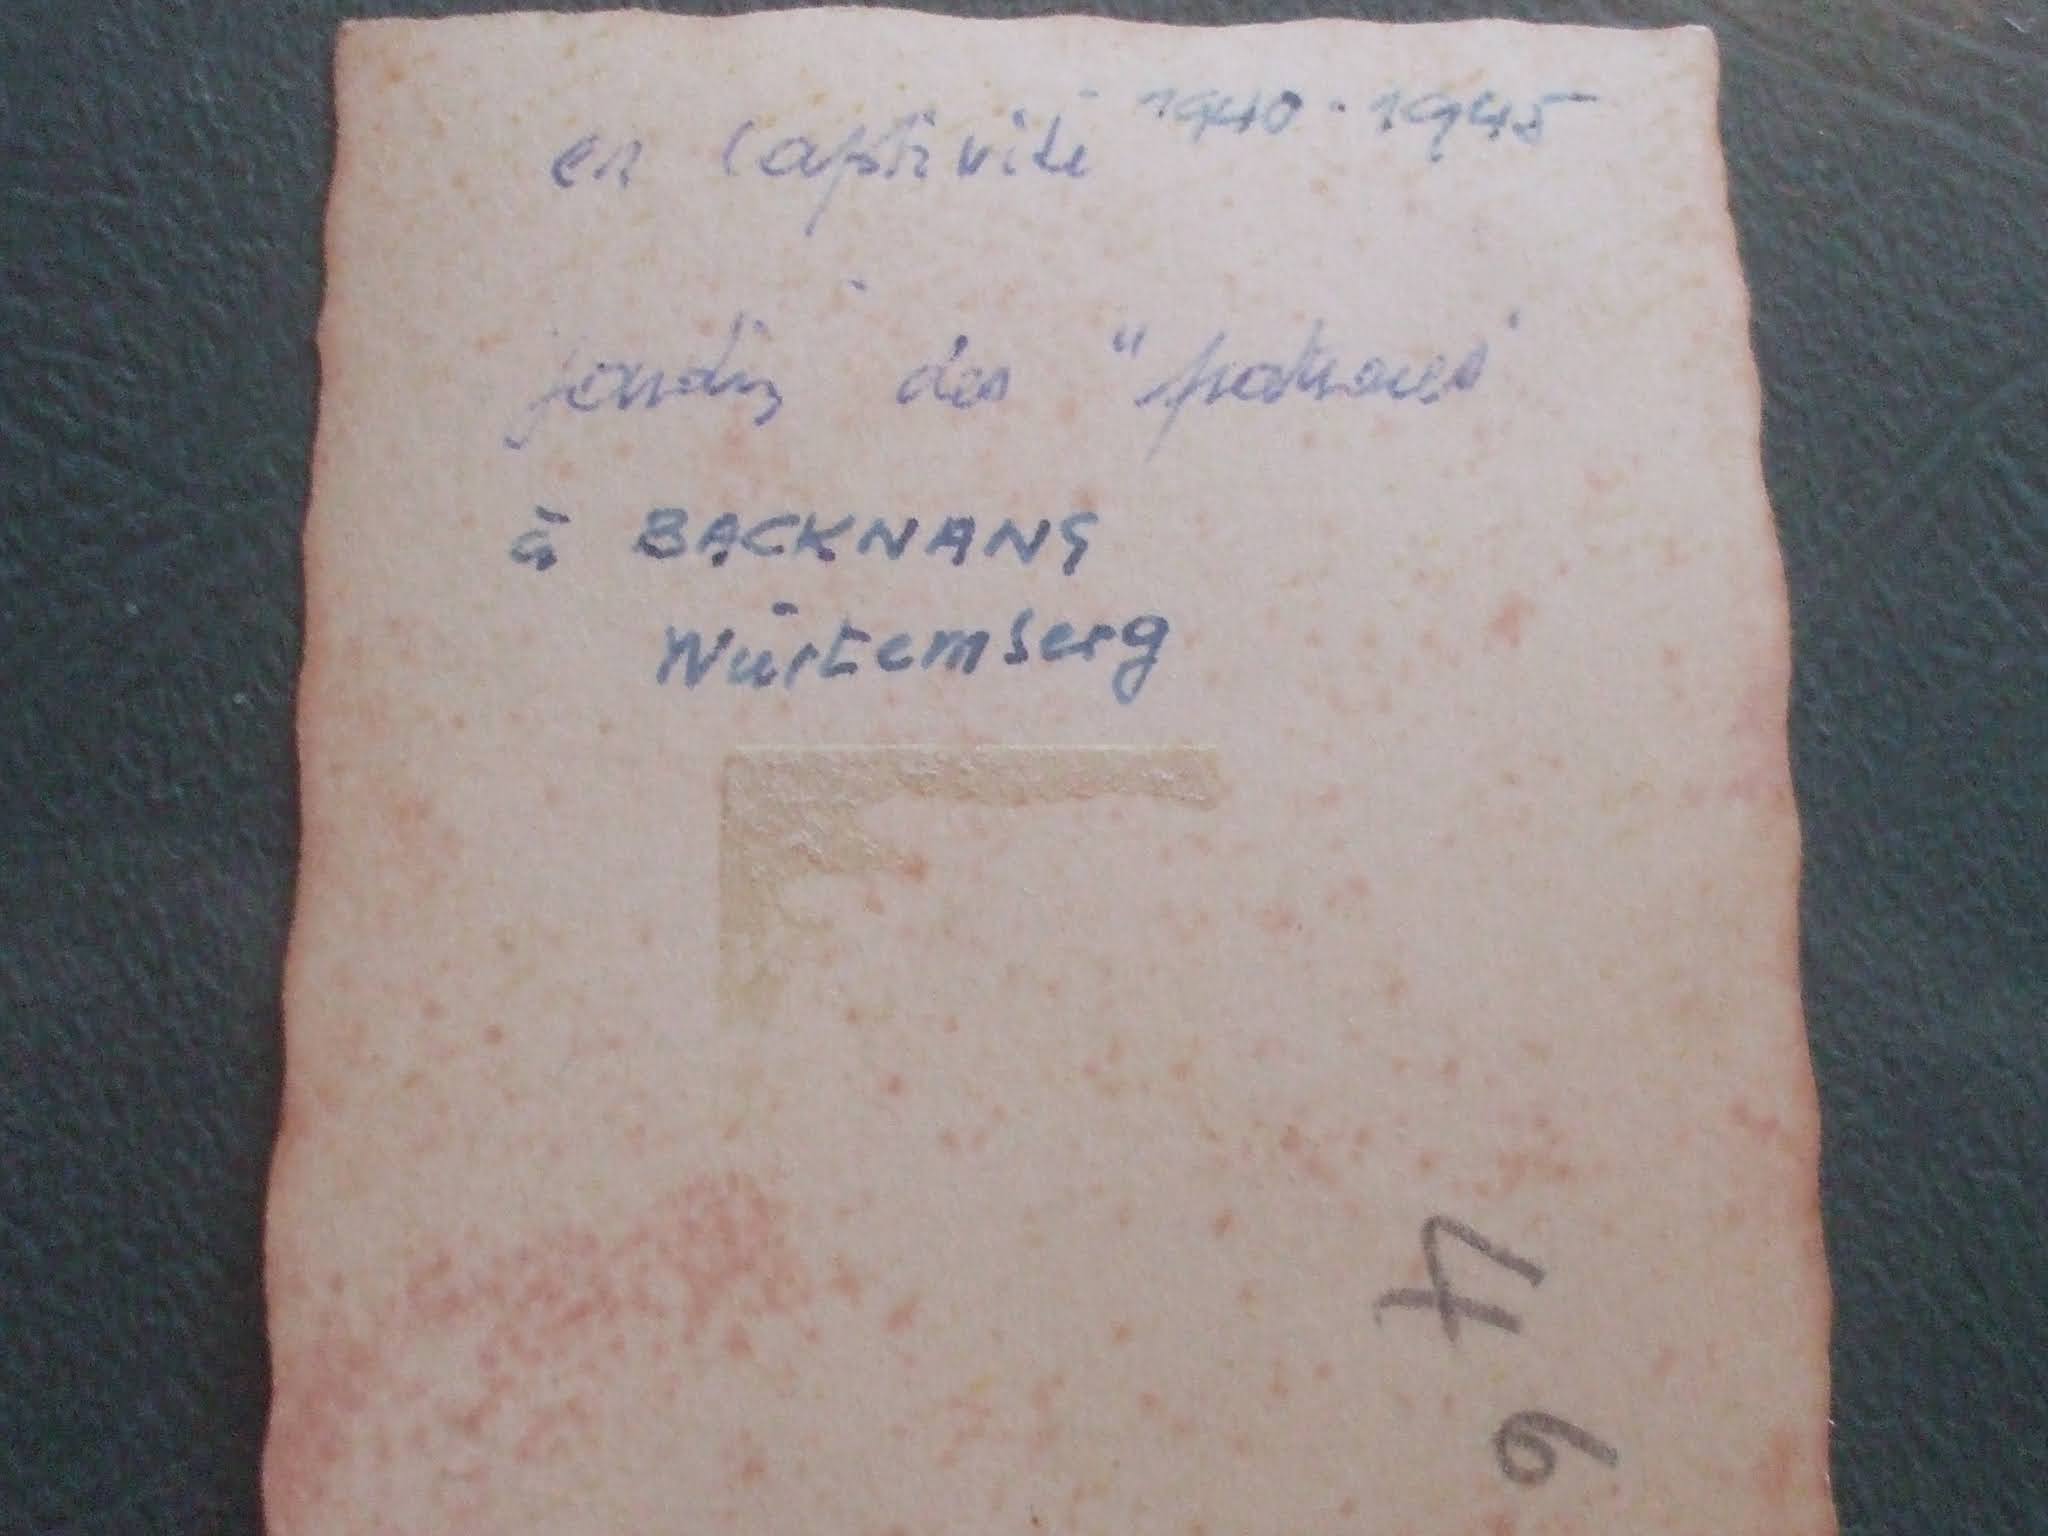 en captivité 1940 - 1945
jardin des "patrones"
à BACKNANG
Würtemberg
47
6